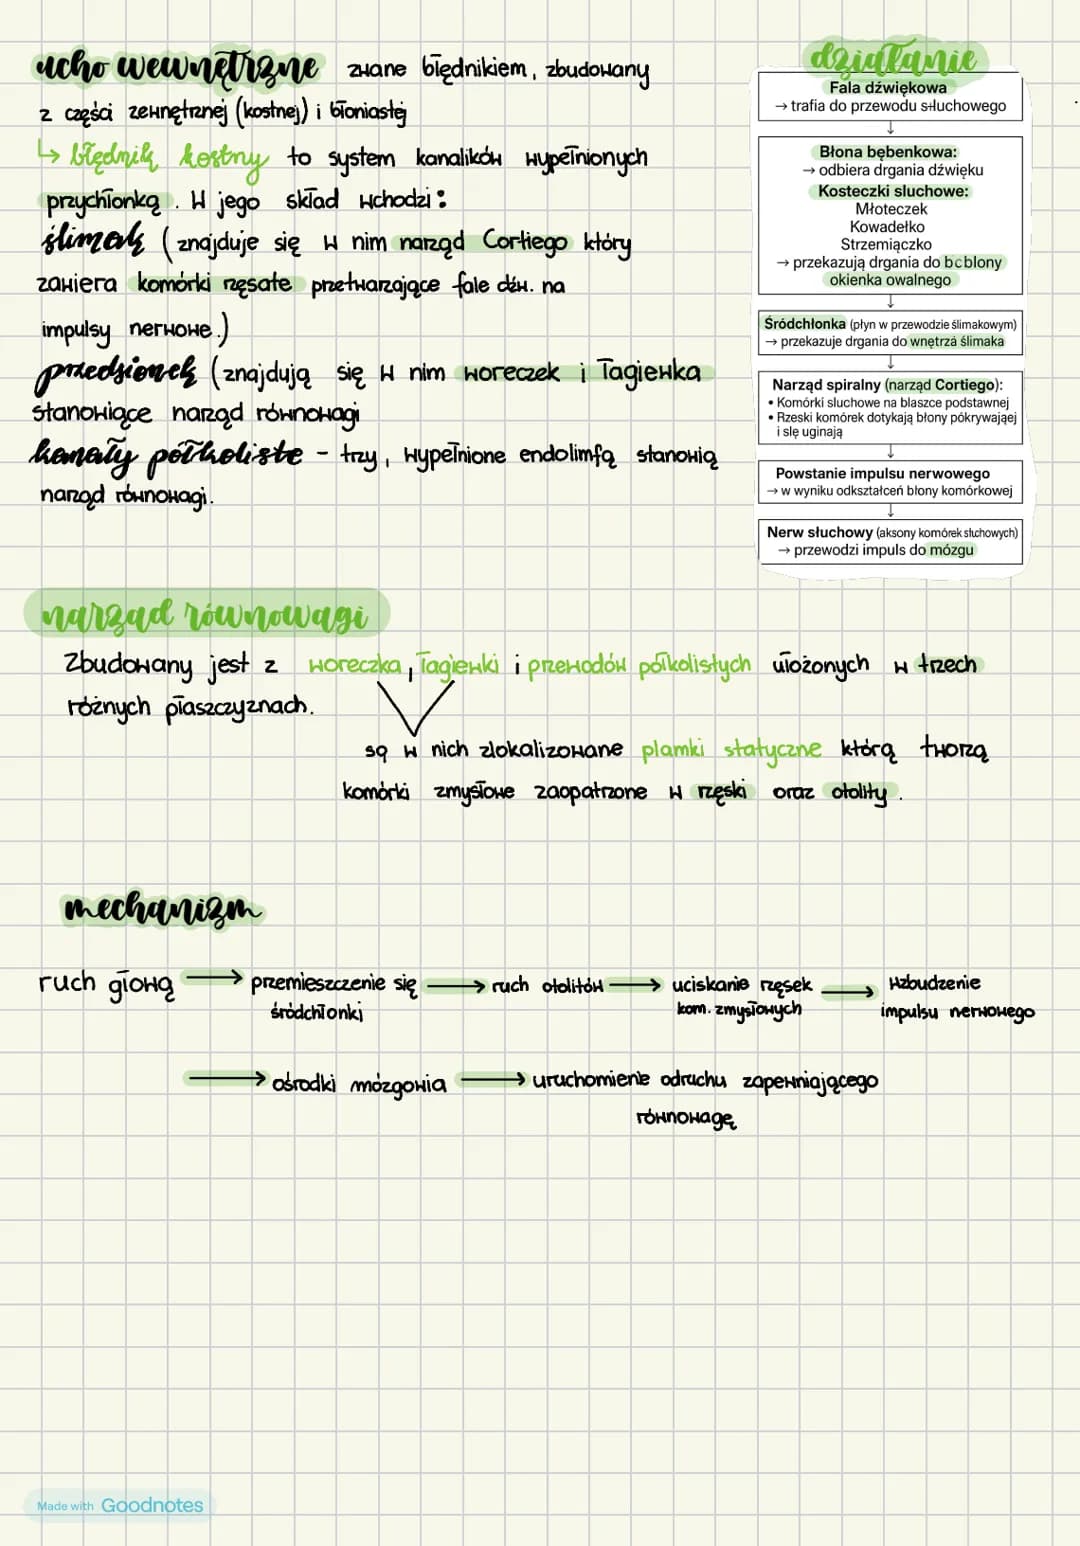 ucho wewnętrzne zwane błędnikiem, zbudowany
z części zewnętrznej (kostnej) i błoniastej
↳ błędnik kostny to system kanalików wypełnionych
przychłonką. W jego skład wchodzi:
ślimak (znajduje się w nim narząd Cortiego który
zawiera komórki rzęsate przetwarzające fale dźw. na
impulsy nerwowe.)
przedsionek (znajdują się w nim woreczek i łagiewka
stanowiące narząd równowagi
kanały półkoliste - trzy, wypełnione endolimfą stanowią
narząd równowagi.
działanie
Fala dźwiękowa
→ trafia do przewodu słuchowego
↓
Błona bębenkowa:
→ odbiera drgania dźwięku
Kosteczki sluchowe:
Młoteczek
Kowadełko
Strzemiączko
→ przekazują drgania do bcblony
okienka owalnego
↓
Śródchłonka (płyn w przewodzie ślimakowym)
→ przekazuje drgania do wnętrza ślimaka
↓
Narząd spiralny (narząd Cortiego):
• Komórki sluchowe na blaszce podstawnej
• Rzeski komórek dotykają błony pókrywająej
i slę uginają
↓
Powstanie impulsu nerwowego
→ w wyniku odkształceń błony komórkowej
↓
Nerw słuchowy (aksony komórek słuchowych)
→ przewodzi impuls do mózgu
narząd równowagi
Zbudowany jest z woreczka, łagiewki i przewodów półkolistych ułożonych w trzech
różnych płaszczyznach.
są w nich zlokalizowane plamki statyczne którą tworzą
komórki zmysłowe zaopatrzone w rzęski oraz otolity.
mechanizm
ruch głową → przemieszczenie się → ruch otolitów → uciskanie rzęsek → wzbudzenie
śródchłonki kom. zmysłowych impulsu nerwowego
→ ośrodki mózgowia → uruchomienie odruchu zapewniającego
równowagę
Made with Goodnotes